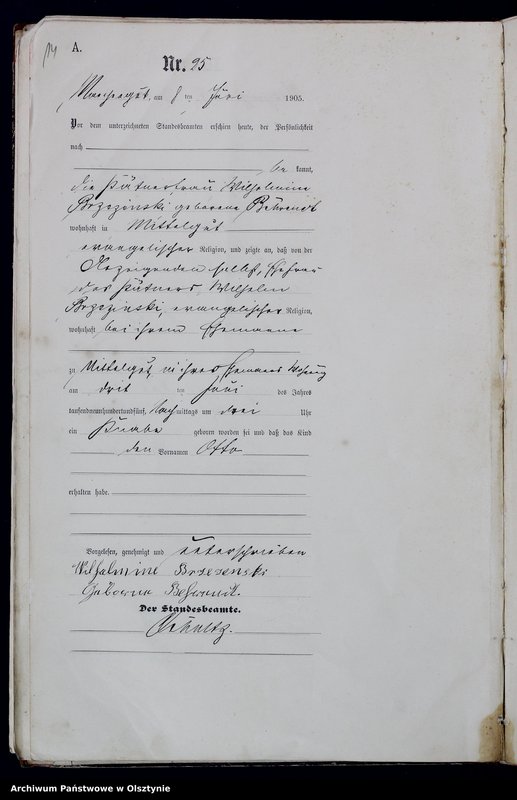 14
A.
Nr. 25
am 8 ten Juni 1905.
Vor dem unterzeichneten Standesbeamten erschien heute, der Persönlichkeit
nach
be kannt,
die Kätnerfrau Wilhelmine
Brzezinski geborene Behrendt
wohnhaft in Mittelgut
evangelischer Religion, und zeigte an, daß von der
Anzeigenden selbst, Ehefrau
des Kätners Wilhelm
Brzezinski, evangelischer Religion,
wohnhaft bei ihrem Ehemanne
zu Mittelgut, in ihres Ehemannes Wohnung
am drit ten Juni des Jahres
tausendneunhundertundfünf, Nach mittags um drei Uhr
ein Knabe geboren worden sei und daß das Kind
den Vornamen Otto
erhalten habe.
Vorgelesen, genehmigt und unterschrieben
Wilhelmine Brzezenski
Geborne Behrendt.
Der Standesbeamte.
Schultz.
Archiwum Państwowe w Olsztynie